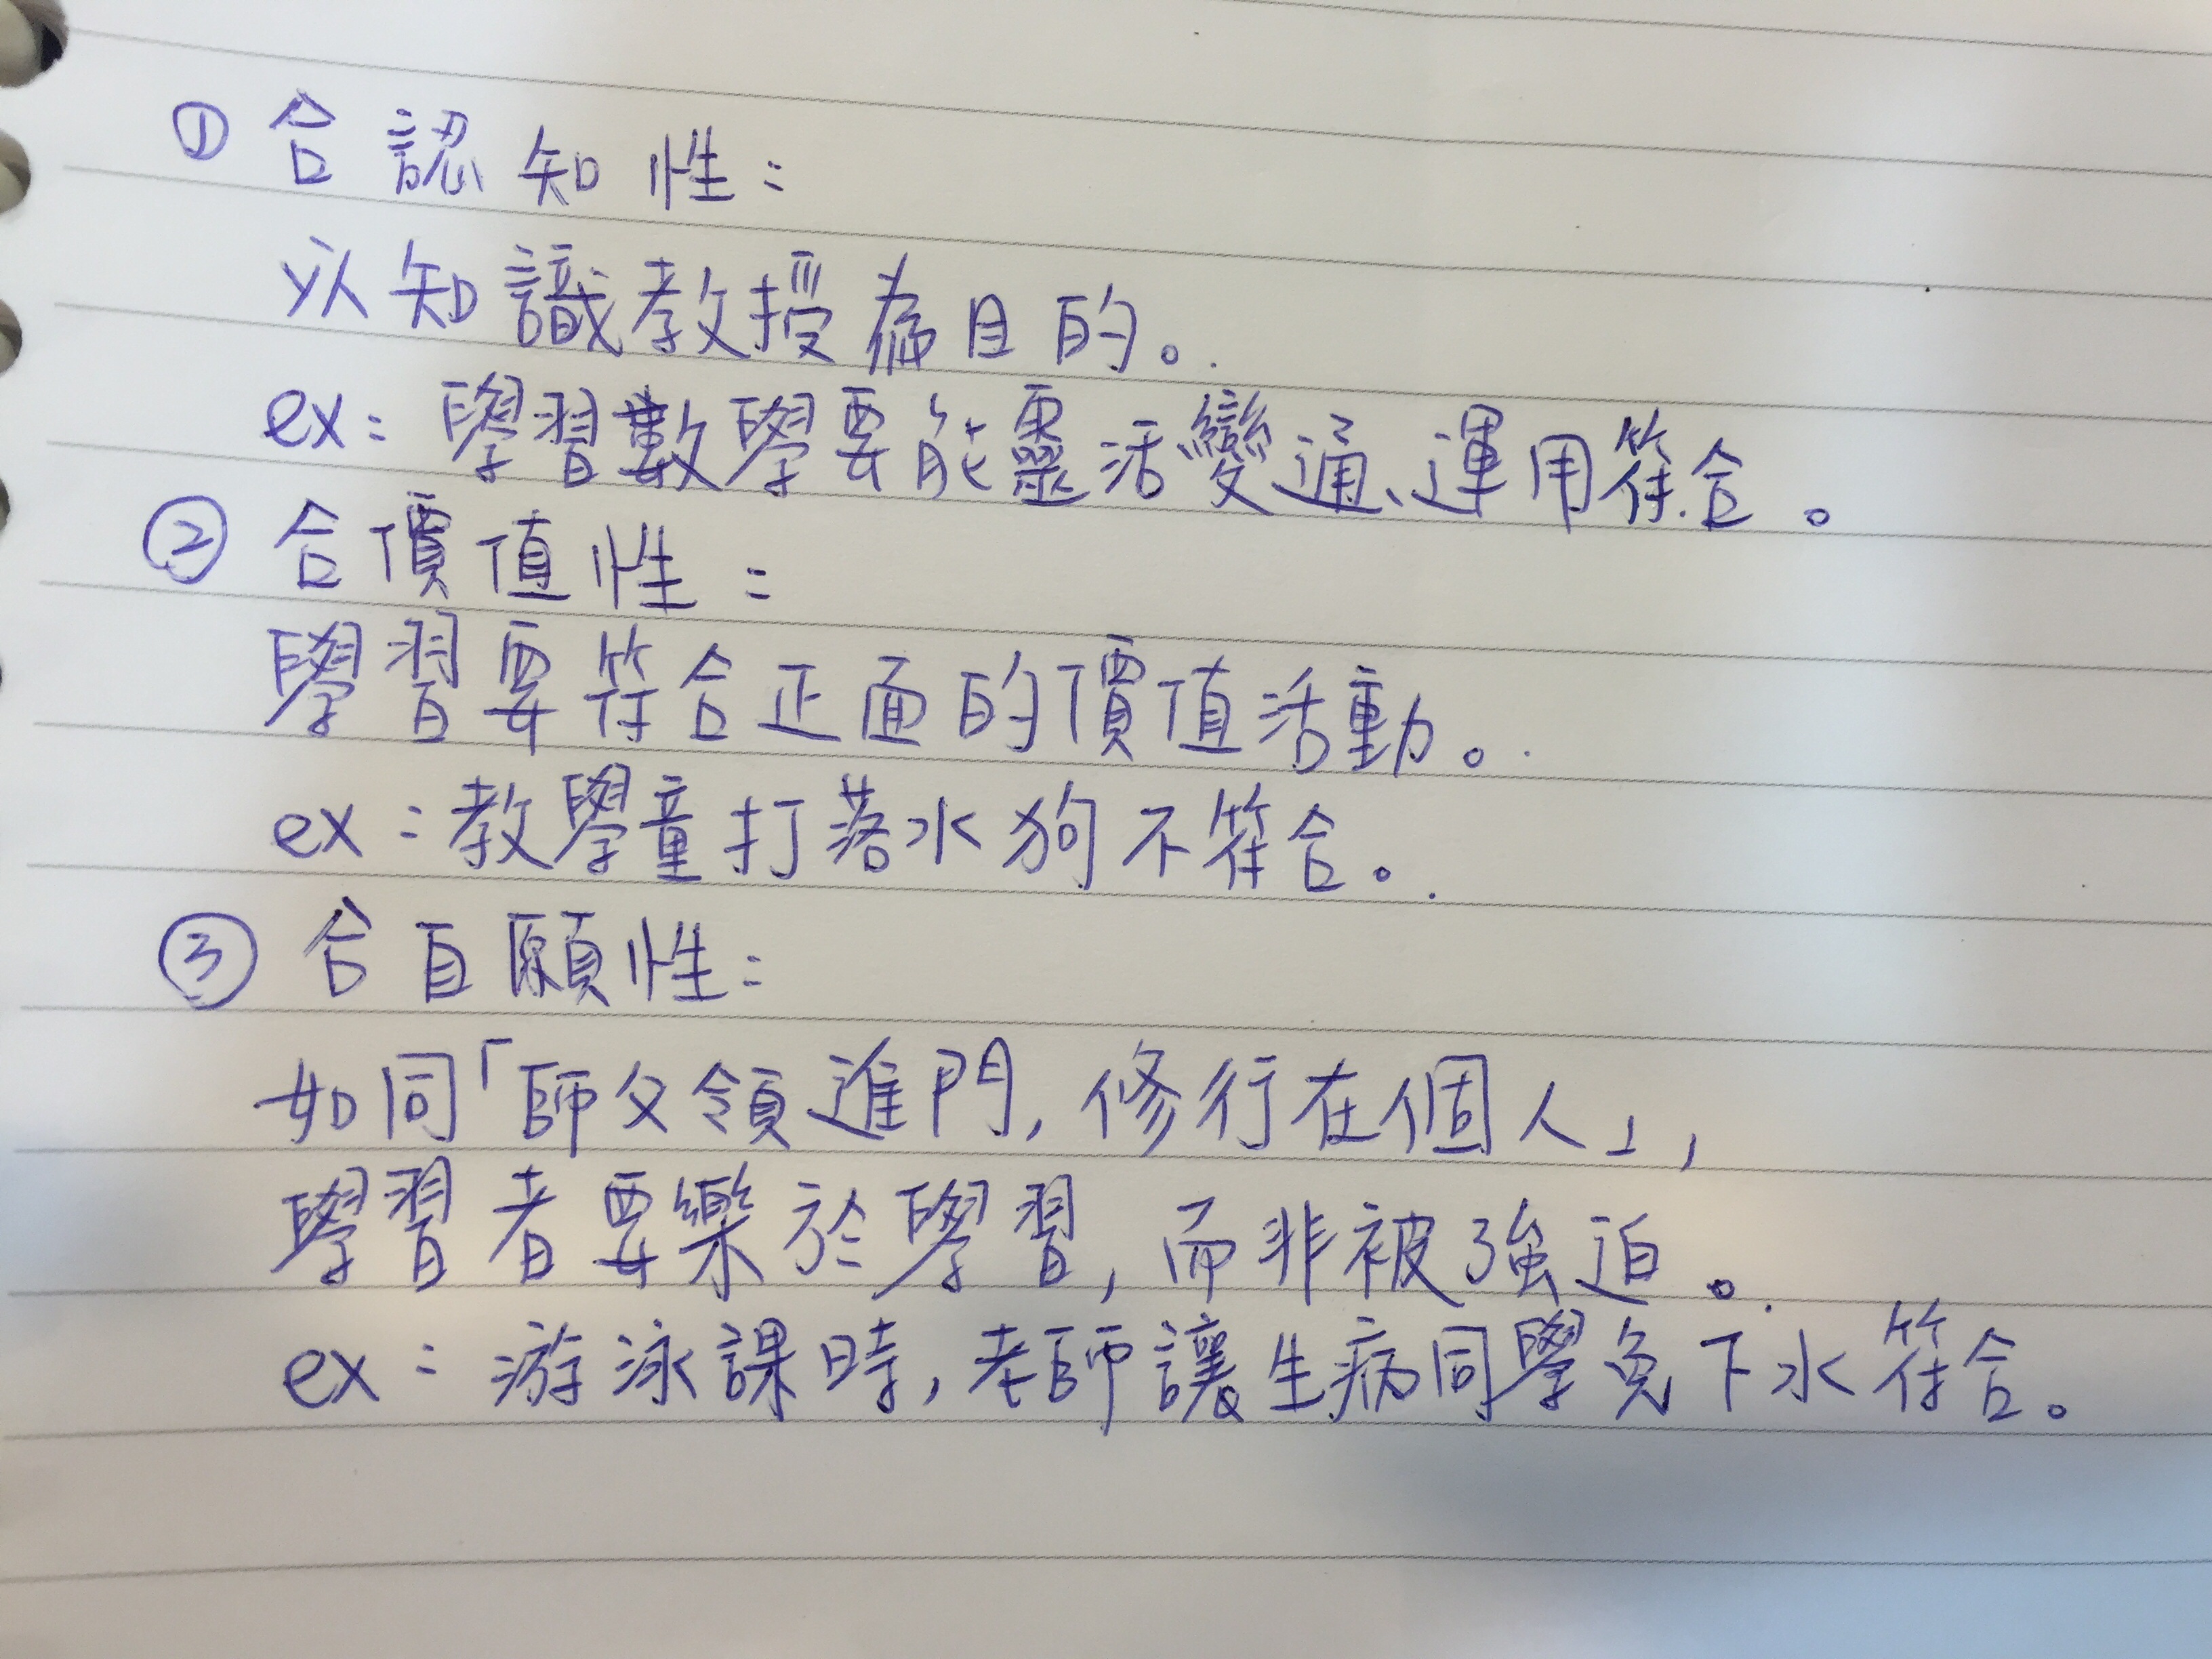 ① 合認知性：
以知識教授為目的。
ex：學習數學要能靈活變通、運用符合。
② 合價值性：
學習要符合正面的價值活動。
ex：教學童打落水狗不符合。
③ 合自願性：
如同「師父領進門,修行在個人」,
學習者要樂於學習,而非被強迫。
ex：游泳課時,老師讓生病同學免下水符合。